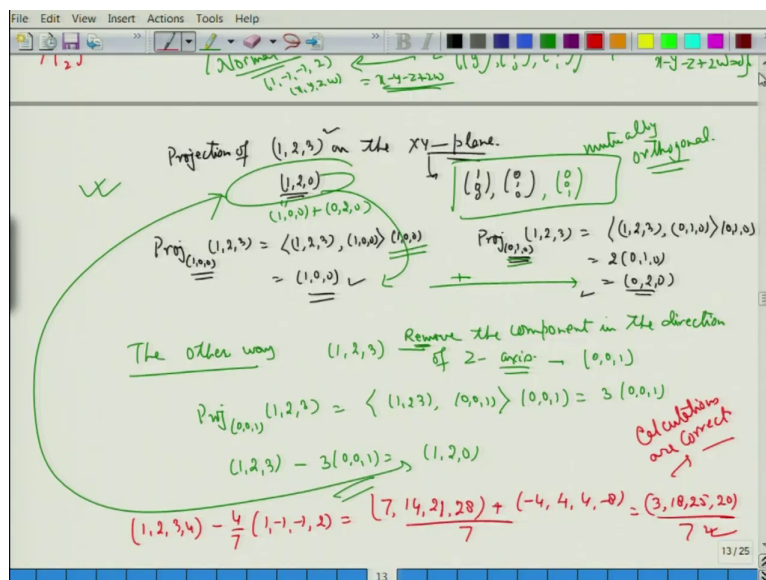 File Edit View Insert Actions Tools Help
Normal
(1,-1,-1,2)
(x,y,z,w) = x-y-z+2w
x-y-z+2w=0
Projection of (1,2,3) on the XY-plane.
mutually
orthogonal.
(1,2,0)
(1 0 0), (0 1 0), (0 0 1)
(1,0,0) + (0,2,0)
Proj(1,0,0) (1,2,3) = ⟨(1,2,3), (1,0,0)⟩ (1,0,0)
= (1,0,0) ✓
Proj(0,1,0) (1,2,3) = ⟨(1,2,3), (0,1,0)⟩ (0,1,0)
= 2(0,1,0)
= (0,2,0)
+
The other way (1,2,3) Remove the component in the direction
of Z-axis - (0,0,1)
Proj(0,0,1) (1,2,3) = ⟨(1,23), (0,0,1)⟩ (0,0,1) = 3(0,0,1)
(1,2,3) - 3(0,0,1) = (1,2,0)
Calculations
are correct
(1,2,3,4) - 4/7 (1,-1,-1,2) = (7, 14, 21, 28) + (-4, 4, 4, -8) / 7 = (3,18,25,20) / 7
13 / 25
13